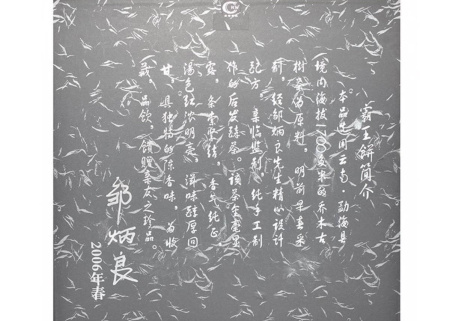 霸王餅簡介
本品选用云南·勐海县
境内海拔1700多米的乔木古
树茶为原料,明前早春采
制,经邹炳良先生精心设计
配方,亲临监制,纯手工制
作的后发酵茶。该茶金毫显
露,条索肥结,香气纯正
汤色红浓明亮,滋味醇厚回
甘,具独特的陈香味,为收
藏、品饮、馈赠亲友之珍品。
邹炳良
2006年春